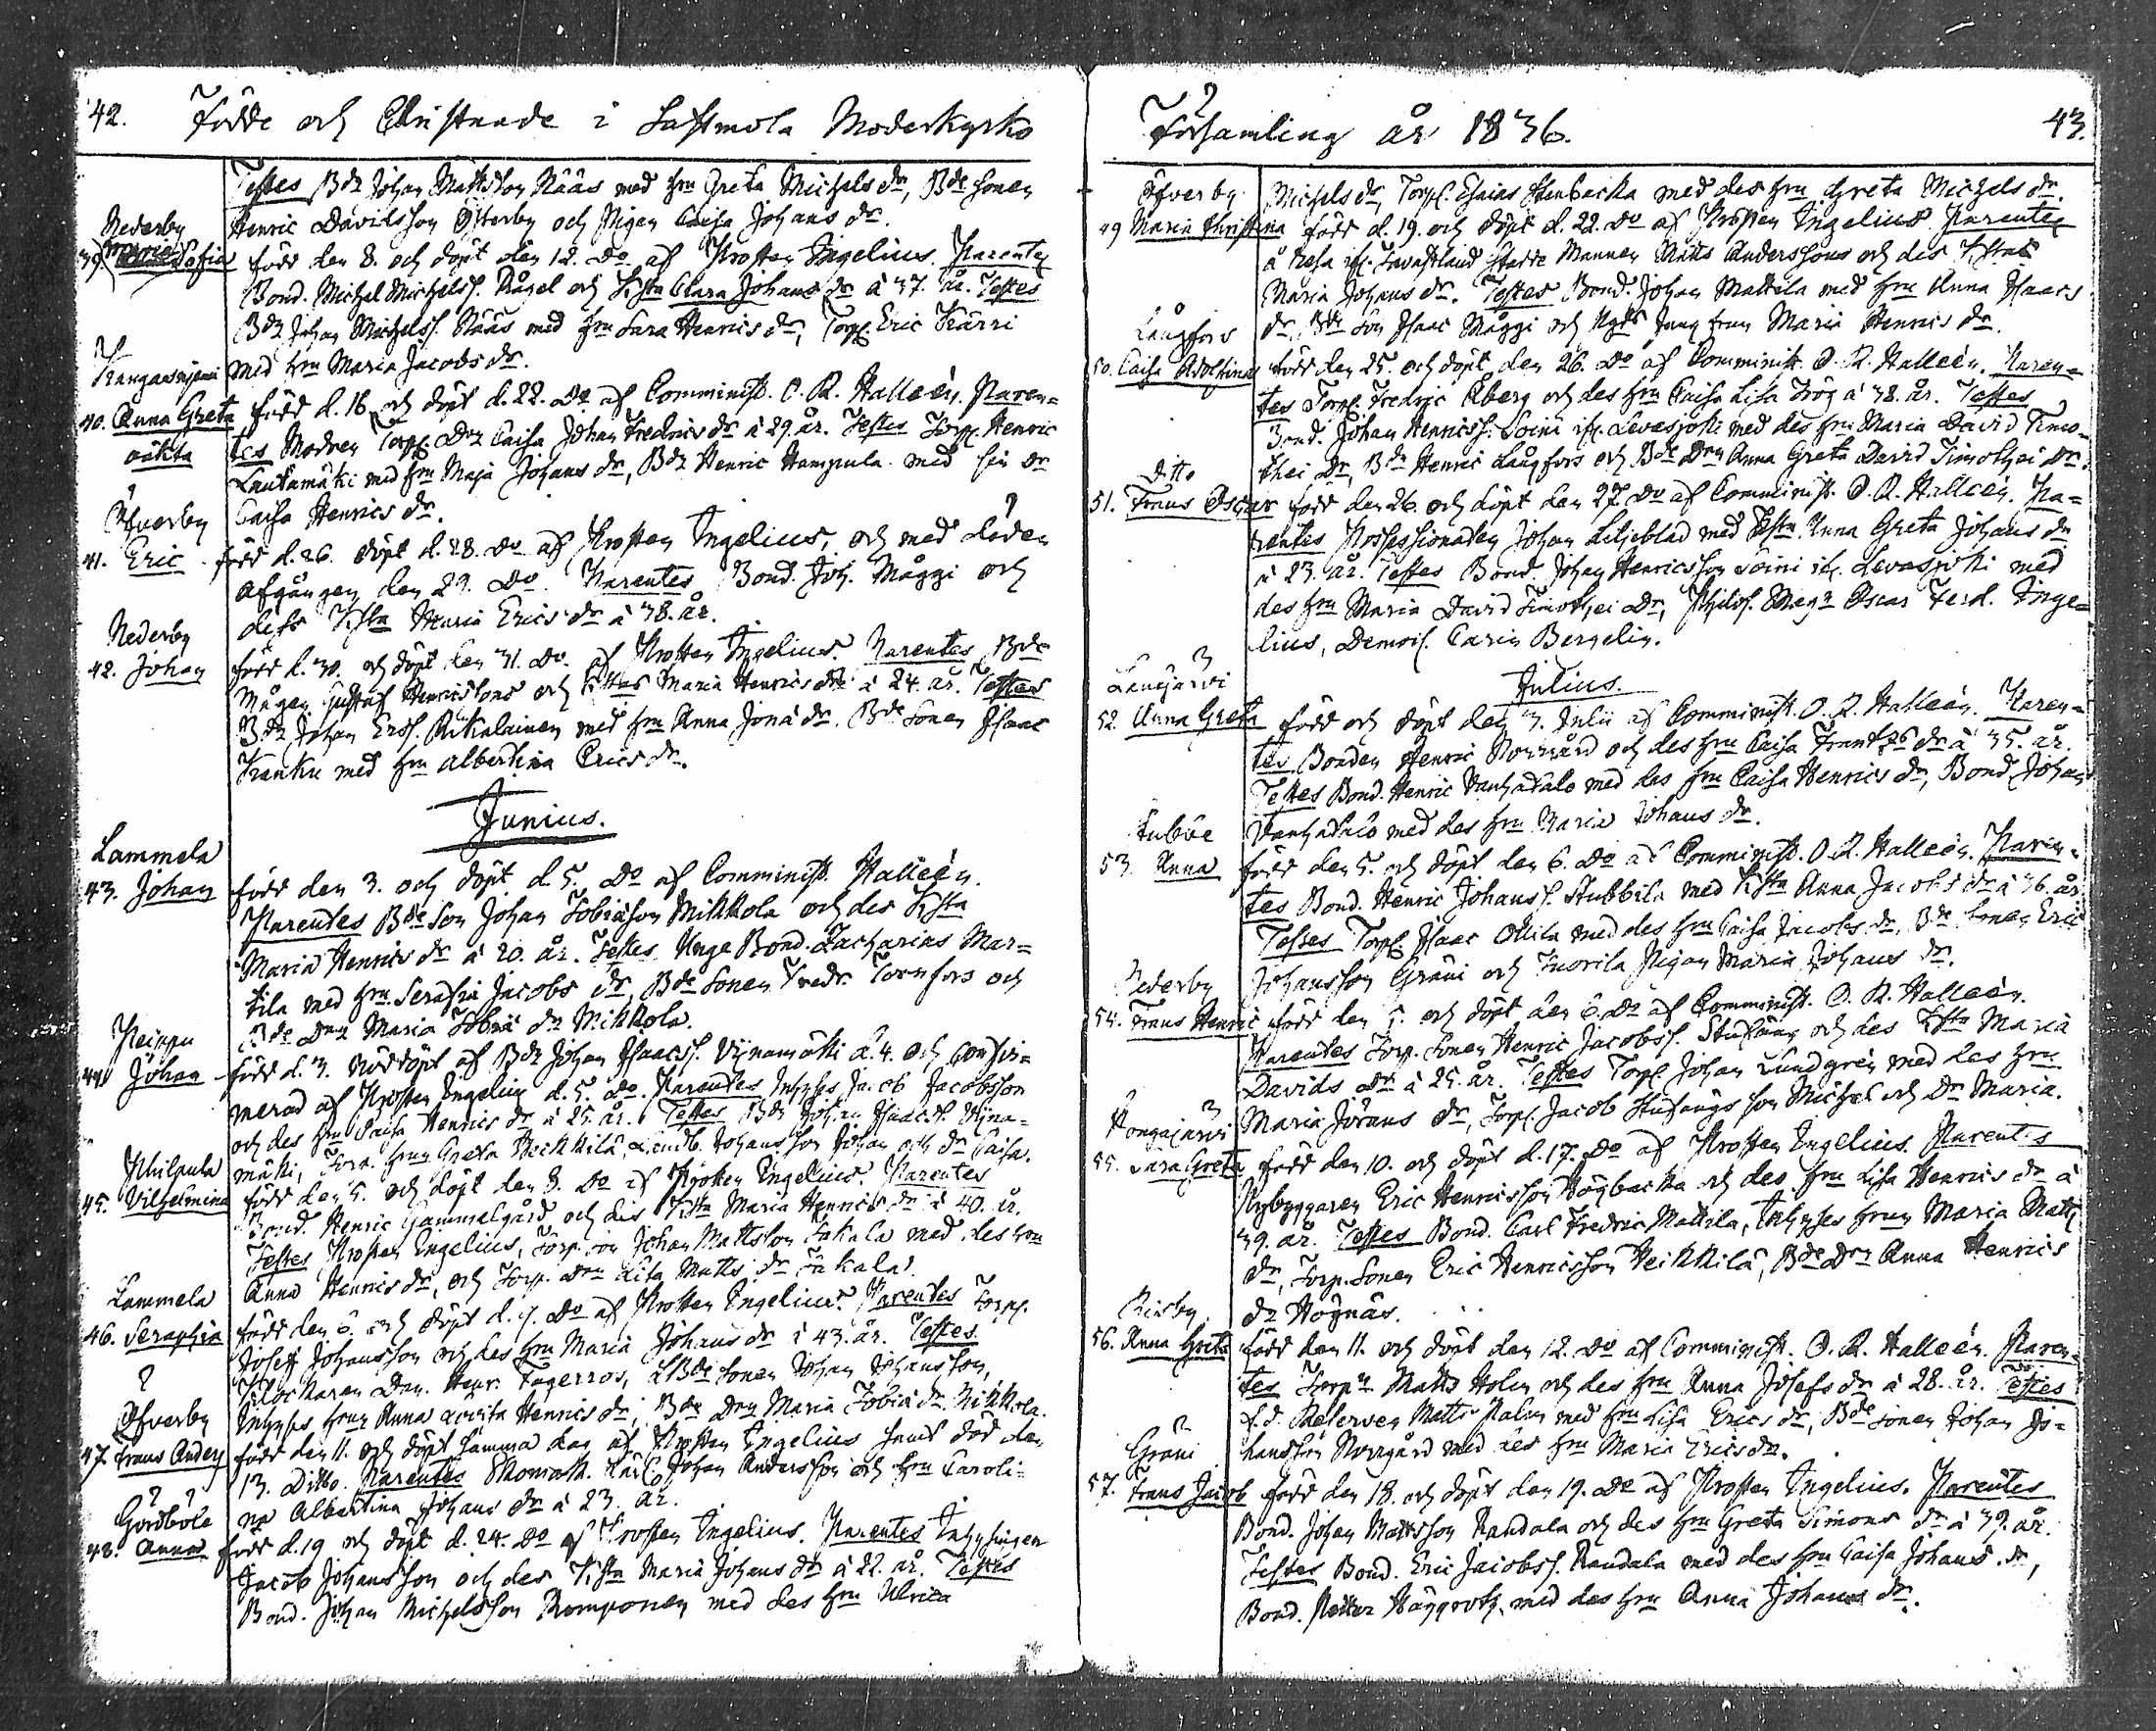 42. Födde och Christnade i Sastmola Moderkyrko
Testes Bdn Johan Mattsson Näås med Hru Greta Michelsdr, Bde Sonen
Henric Davidsson Österby och Pigan Caisa Johans dr.
Nederby
39. Maria Sofia född den 8. och döpt den 12. do af Prosten Ingelius. Parentes
Bond. Michel Michelss. Rågel och Hsta Clara Johans dr à 37. år. Testes
Bdn Johan Michelss. Näås med Hru Sara Henrics dr, Torp. Eric Kärri
med Hru Maria Jacobs dr.
Kangasniemi
40. Anna Greta född d. 16 och döpt d. 22. do af Comminist. O. R. Halleén. Paren-
oäkta
tes Modren Torp. Drn Caisa Johan Fredrics dr à 29. år. Testes Torp. Henric
Lautamäki med Hru Maja Johans dr, Bdn Henric Hampula med sin dr
Caisa Henrics dr.
Öfverby
41. Eric född d. 26. döpt d. 28. do af Prosten Ingelius, och med döden
afgången den 29. do. Parentes Bond. Joh. Måggi och
dess Hsta Maria Erics dr à 38. år.
Nederby
42. Johan född d. 30. och döpt den 31. do. af Prosten Ingelius. Parentes Bde
Mågen Gustaf Henricssons och Hstrus Maria Henrics dr à 24. år. Testes
Bdn Johan Erss. Rikalainen med Hru Anna Jona dr. Bde Sonen Isaac
Kranku med Hru Albertina Erics dr.
Junius.
Lammela
43. Johan född den 3. och döpt d. 5. do af Comminist. Halleén.
Parentes Bde Son Johan Tobiason Mikkola och des Hsta
Maria Henrics dr à 20. år. Testes Unge Bond. Zacharias Mar-
tila med Hru Serafia Jacobs dr, Bde Sonen Fredr. Tornfors och
Bde Drn Maria Tobiæ dr Mikkola.
Peippu
44. Johan född d. 3. nöddöpt af Bdn Johan Isaacss. Vynamäki d. 4. och confir-
merad af Prosten Ingelius d. 5. do. Parentes Inhyses Jacob Jacobsson
och des Hru Caisa Henrics dr à 25. år. Testes Bdn Johan Isaacss. Vyna-
mäki, Torp. Hrun Greta Heikkilä, Landb. Johansson Johan och dr Caisa.
Philpula
45. Vilhelmina född den 5. och döpt den 8. do af Prosten Ingelius. Parentes
Bond. Henric Gammelgård och des Hsta Maria Henrics dr à 40. år.
Testes Prosten Ingelius, Torp. Son Johan Mattsson Takala med des Hru
Anna Henrics dr, och Torp. Drn Lisa Matts dr Takala.
Lammela
46. Seraphia född den 6. och döpt d. 9. do af Prosten Ingelius. Parentes Torp.
Josef Johansson och des Hru Maria Johans dr à 43. år. Testes
Klockaren Dan. Henr. Fagerros, Bde Sonen Johan Johansson,
Inhyses Hrun Anna Lovisa Henrics dr, Bde Drn Maria Tobiæ dr Mikkola.
Öfverby
47. Frans Anders född den 11. och döpt samma dag af Prosten Ingelius samt död den
13. Ditto. Parentes Skomak. Karl Johan Andersson och Hru Caroli-
na Albertina Johans dr à 23. år.
Gårdböle
48. Anna född d. 19 och döpt d. 24. do af Prosten Ingelius. Parentes Inhysingen
Jacob Johansson och des Hsta Maria Johans dr à 22. år. Testes
Bond. Johan Michelsson Romponen med des Hru Ulrica
Församling år 1836. 43.
Michels dr, Torp. Esaias Stenbacka med des Hru Greta Michels dr.
Öfverby
49 Maria Christina född d. 19. och döpt d. 22. do af Prosten Ingelius. Parentes
å Resa ifr. Tavastland Stadde Mannen Matts Anderssons och des Hstrus
Maria Johans dr. Testes Bond. Johan Mattila med Hru Anna Isaacs
dr, Bde Son Isaac Måggi och Jungfrun Maria Henrics dr.
Långfors
50. Caisa Adolfina född den 25. och döpt den 26. do af Comminist. O. R. Halleén. Paren-
tes Torp. Fredric Åberg och des Hru Caisa Lisa Frög à 38. år. Testes
Bond. Johan Henricss. Soini ifr. Levasjoki med des Hru Maria David Timo-
thei dr, Bdn Henric Långfors och Bde Drn Anna Greta David Timothei dr.
Ditto
51. Frans Oscar född den 26. och döpt den 27. do af Comminist. O. R. Halleén. Pa-
rentes Possessionaten Johan Liljeblad med Hsta Anna Greta Johans dr
à 23. år. Testes Bond. Johan Henricsson Soini ifr. Levasjoki med
des Hru Maria David Timothei dr, Philos. Magr Oscar Ferd. Inge-
lius, Demois. Carin Bergelin.
Julius.
Lankjärvi
52. Anna Greta född och döpt den 3. Julii af Comminist. O. R. Halleén. Paren-
tes Bonden Henric Norrgård och des Hru Caisa Frants dr à 35. år.
Testes Bond. Henric Vanhatalo med des Hru Caisa Henrics dr, Bond. Johan
Vanhatalo med des Hru Maria Johans dr.
Tuböle
53. Anna född den 5. och döpt den 6. do af Comminist. O. R. Halleén. Paren-
tes Bond. Henric Johanss. Stubbila med Hsta Anna Jacobs dr à 36. år.
Testes Torp. Isaac Ollila med des Hru Caisa Jacobs dr, Bde Sonen Eric
Johansson Gråni och Tuorila Pigan Maria Johans dr.
Nederby
54. Frans Henric född den 5. och döpt den 6. do af Comminist. O. R. Halleén.
Parentes Torp. Sonen Henric Jacobss. Stufäng och des Hsta Maria
Davids dr à 25. år. Testes Torp. Johan Lundgrén med des Hru
Maria Jörans dr, Torp. Jacob Stufängs Son Michel och Dr Maria.
Pongajärvi
55. Sara Greta född den 10. och döpt d. 17. do af Prosten Ingelius. Parentes
Nybyggaren Eric Henricsson Högbacka och des Hru Lisa Henrics dr à
39. år. Testes Bond. Carl Fredric Mattila, Inhyses Hrun Maria Matts
dr, Torp. Sonen Eric Henricsson Heikkilä, Bde Drn Anna Henrics
dr Högnäs.
Riisby
56. Anna Greta född den 11. och döpt den 12. do af Comminist. O. R. Halleén. Paren-
tes Torpn Matts Holm och des Hru Anna Josefs dr à 28. år. Testes
f.d. Reserven Matts Palm med Hru Lisa Erics dr, Bde Sonen Johan Jo-
hansson Norrgård med des Hru Maria Erics dr.
Gråni
57. Frans Jacob född den 18. och döpt den 19. do af Prosten Ingelius. Parentes
Bond. Johan Mattsson Randala och des Hru Greta Simons dr à 39. år.
Testes Bond. Eric Jacobss. Randala med des Hru Caisa Johans dr,
Bond. Petter Häggroth med des Hru Anna Johans dr.